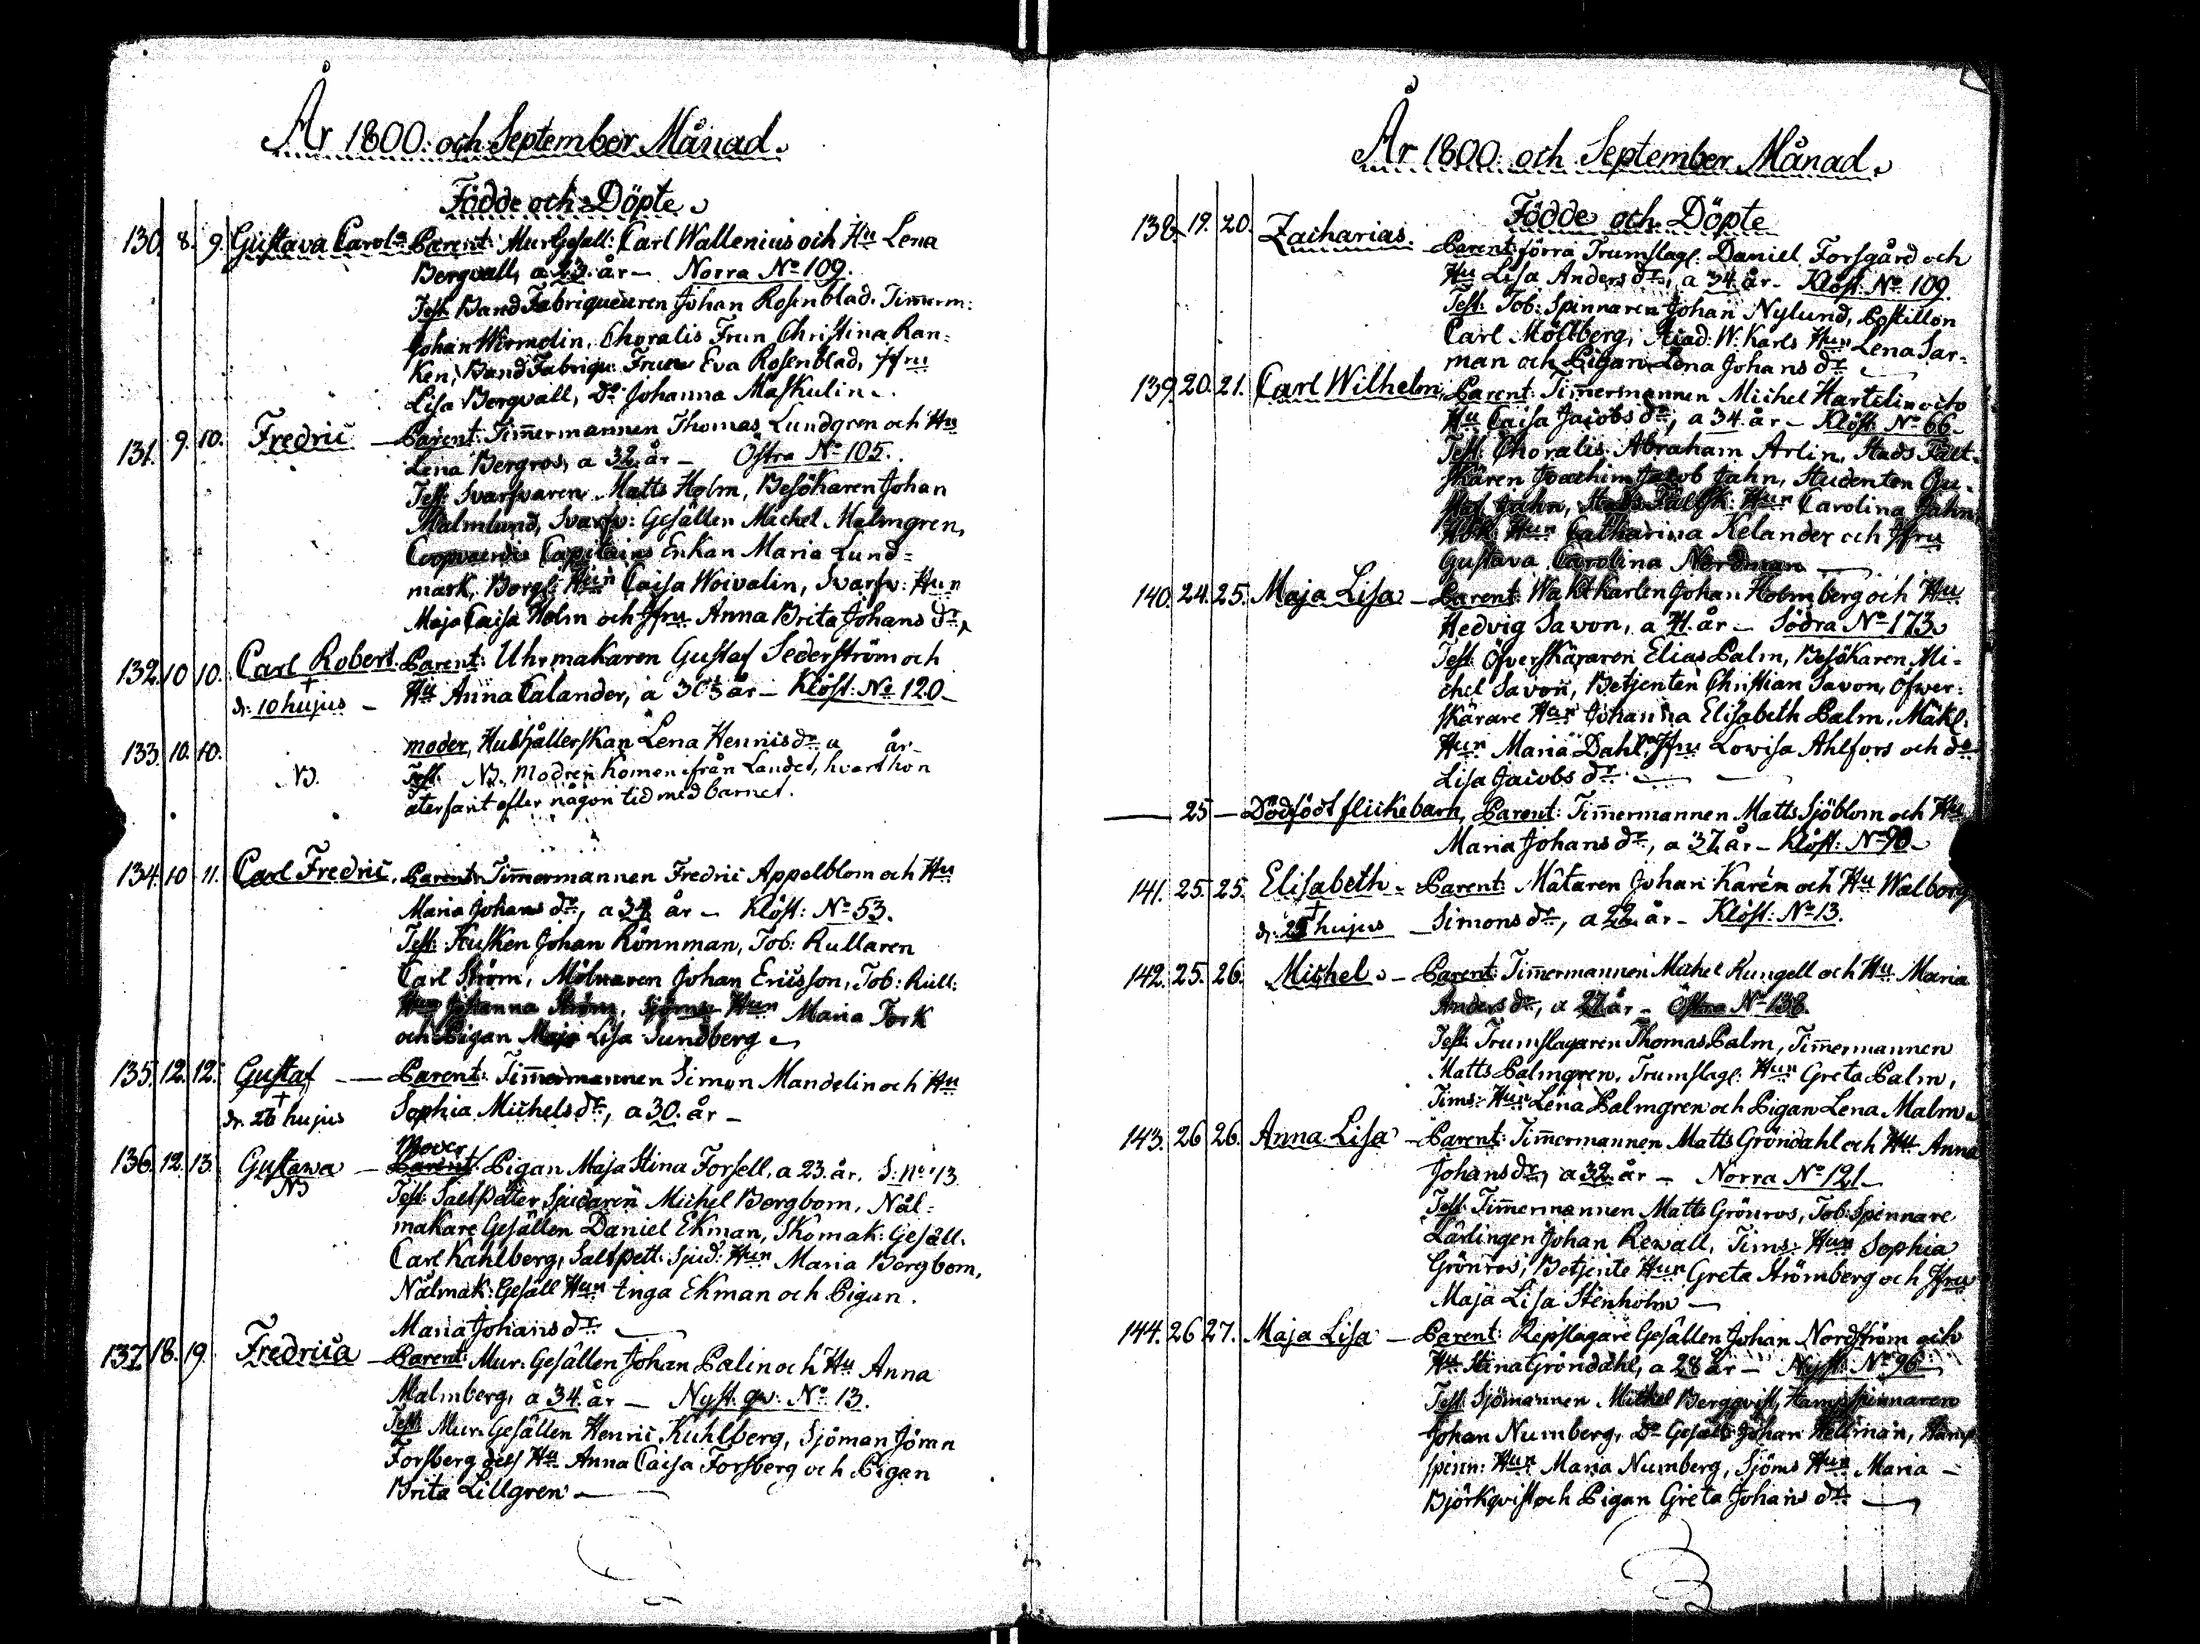 År 1800. och September Månad.
Födde och Döpte
130. 8. 9. Gustava Carola Parent: MurGesall: Carl Wallenius och Hu Lena
Bergvall, a 23. år — Norra No 109.
Test. BandFabriqueuren Johan Rosenblad. Timerm:
Johan Wirmelin, Choralis Frun Christina Ran:
ken, BandFabriqu: Fruen Eva Rosenblad, Jfru
Lisa Bergvall, Do Johanna Maskulin.
131. 9. 10. Fredric — Parent: Timermannen Thomas Lundgren och Hu
Lena Bergros, a 32 år — Östra No 105.
Test: Svarfvaren Matts Holm, Besökaren Johan
Malmlund, Svarfv: Gesällen Michel Malmgren,
Coopvaerdie Capitains Enkan Maria Lund=
mark, Borgl: Hun Caisa Woivalin, Svarfv: Hun
Maja Caisa Holm och Jfru Anna Brita Johans dr,
132. 10 10. Carl Robert. Parent: Uhrmakaren Gustaf Sederström och
† d: 10 hujus — Hu Anna Calander, a 30 1/3 år — Klöst: No 120 —
133. 10. 10. moder, Hushållerskan Lena Hennis dr a år —
NB. Test. NB. Modren komen ifrån Landet, hvart hon
återfarit efter någon tid med barnet.
134. 10 11. Carl Fredric. Parent: Timmermannen Fredric Appelblom och Hu
Maria Johans dr, a 34 år — Klöst: No 53.
Test: Kusken Johan Rönnman, Tob: Rullaren
Carl Ström, Mölnaren Johan Ericsson, Tob: Rull:
Hun Johanna Ström, Sjöms: Hun Maria Tork
och Pigan Maja Lisa Sundberg
135. 12. 12. Gustaf — Parent: Timmermannen Simon Mandelin och Hu
† dr. 26 hujus Sophia Michels dr, a 30. år —
Moder
136. 12. 13. Gustawa — Parent: Pigan Maja Stina Forsell, a 23. år. S: No 43
NB Test: Saltpeter Sjudaren Michel Bergbom, Nål=
makare Gesällen Daniel Ekman, Skomak: Gesäll.
Carl Kahlberg, Saltpett: Sjud: Hun Maria Bergbom,
Nålmak: Gesäll Hun Inga Ekman och Pigan.
Maria Johans dr
137. 18. 19. Fredrica — Parent: Mur: Gesällen Johan Palin och Hu Anna
Malmberg, a 34. år — Nyst. qv: No 13.
Test: Mur: Gesällen Henric Kuhlberg, Sjöman Jöran
Forsberg dess Hu Anna Caisa Forsberg och Pigan
Brita Lillgren —
År 1800. och September Månad.
Födde och Döpte
138. 19. 20. Zacharias. Parent: förra Trumslag: Daniel Forsgård och
Hu Lisa Anders dr, a 34 år — Klöst: No 109.
Test: Tob: Spinnaren Johan Nylund, Postillon
Carl Möllberg, Acad: W: Karls Hun Lena Sar=
man och Pigan Lena Johans dr
139. 20. 21. Carl Wilhelm, Parent: Timmermannen Michel Hartelin och
Hu Caisa Jacobs dr, a 34. år — Klöst: No 66 —
Test: Choralis Abraham Arlin, Stads Fält=
skären Joachim Jacob Jahn, Studenten Gu=
staf Jahn, Stads Fältsk: Hun Carolina Jahn,
Hun Catharina Kelander och Jfru
Gustava Carolina Nordman —
140. 24. 25. Maja Lisa — Parent: Waktkarlen Johan Holmberg och Hu
Hedvig Savon, a 41. år — Södra No 173
Test: Öfverskäraren Elias Palm, Besökaren Mi=
chel Savon, Betjenten Christian Savon, Öfwer=
skärare Hun Johanna Elisabeth Palm, Mäkl:
Hun Maria Dahl, Jfru Lowisa Ahlfors och do
Lisa Jacobs dr
— 25 — Dödfödt flickebarn, Parent: Timmermannen Matts Sjöblom och Hu
Maria Johans dr, a 37. år — Klöst: No 90 —
141. 25. 25. Elisabeth — Parent: Mätaren Johan Karén och Hu Walborg
† dr: 25 hujus — Simons dr, a 22 år — Klöst: No 13.
142. 25. 26. Michel — Parent: Timmermannen Michel Kungell och Hu Maria
Anders dr, a 27 år — Östra No 138.
Test: Trumslagaren Thomas Palm, Timmermannen
Matts Palmgren, Trumslag: Hun Greta Palm,
Tims: Hun Lena Palmgren och Pigan Lena Malm
143. 26 26. Anna Lisa — Parent: Timmermannen Matts Gröndahl och Hu Anna
Johans dr, a 32 år — Norra No 121 —
Test: Timmermannen Matts Grönros, Tob: Spinnare
Lärlingen Johan Rewall, Tims: Hun Sophia
Grönros, Betjente Hun Greta Strömberg och Jfru
Maja Lisa Stenholm —
144. 26 27. Maja Lisa — Parent: Repslagare Gesällen Johan Nordström och
Hu Stina Gröndahl, a 28 år — Nyst: No 96
Test: Sjömannen Michel Bergqvist, Hampspinnaren
Johan Numberg, Do Gesäll: Johan Hellman, Hamp
spinn: Hun Maria Numberg, Sjöms Hun Maria —
Björkqvist och Pigan Greta Johans dr —